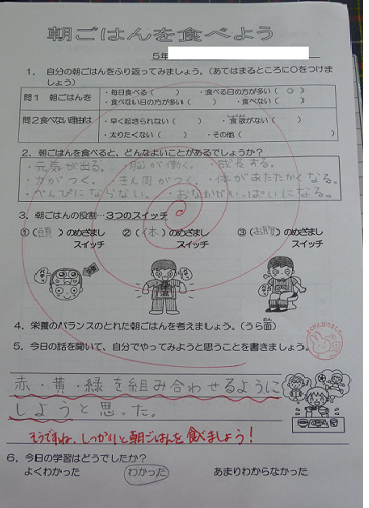 朝ごはんを食べよう
5年
1. 自分の朝ごはんをふり返ってみましょう。(あてはまるところに○をつけましょう)
問1 朝ごはんを ・毎日食べる( ) ・食べる日の方が多い( ○ )
・食べない日の方が多い( ) ・食べない( )
問2 食べない理由は ・早く起きられない( ) ・食欲がない( )
・太りたくない( ) ・その他( )
2. 朝ごはんを食べると、どんなよいことがあるでしょうか?
・元気が出る。・脳が働く。・成長する。
・力がつく。・きん肉がつく。・体があたたかくなる。
・べんぴにならない。・おなかがいっぱいになる。
3. 朝ごはんの役割…3つのスイッチ
①(頭)のめざまし ②(体)のめざまし ③(お腹)のめざまし
スイッチ スイッチ スイッチ
4. 栄養のバランスのとれた朝ごはんを考えましょう。(うら面)
5. 今日の話を聞いて、自分でやってみようと思うことを書きましょう。
赤・黄・緑を組み合わせるように
しようと思った。
そうですね。しっかりと朝ごはんを食べましょう!
6. 今日の学習はどうでしたか?
よくわかった わかった あまりわからなかった